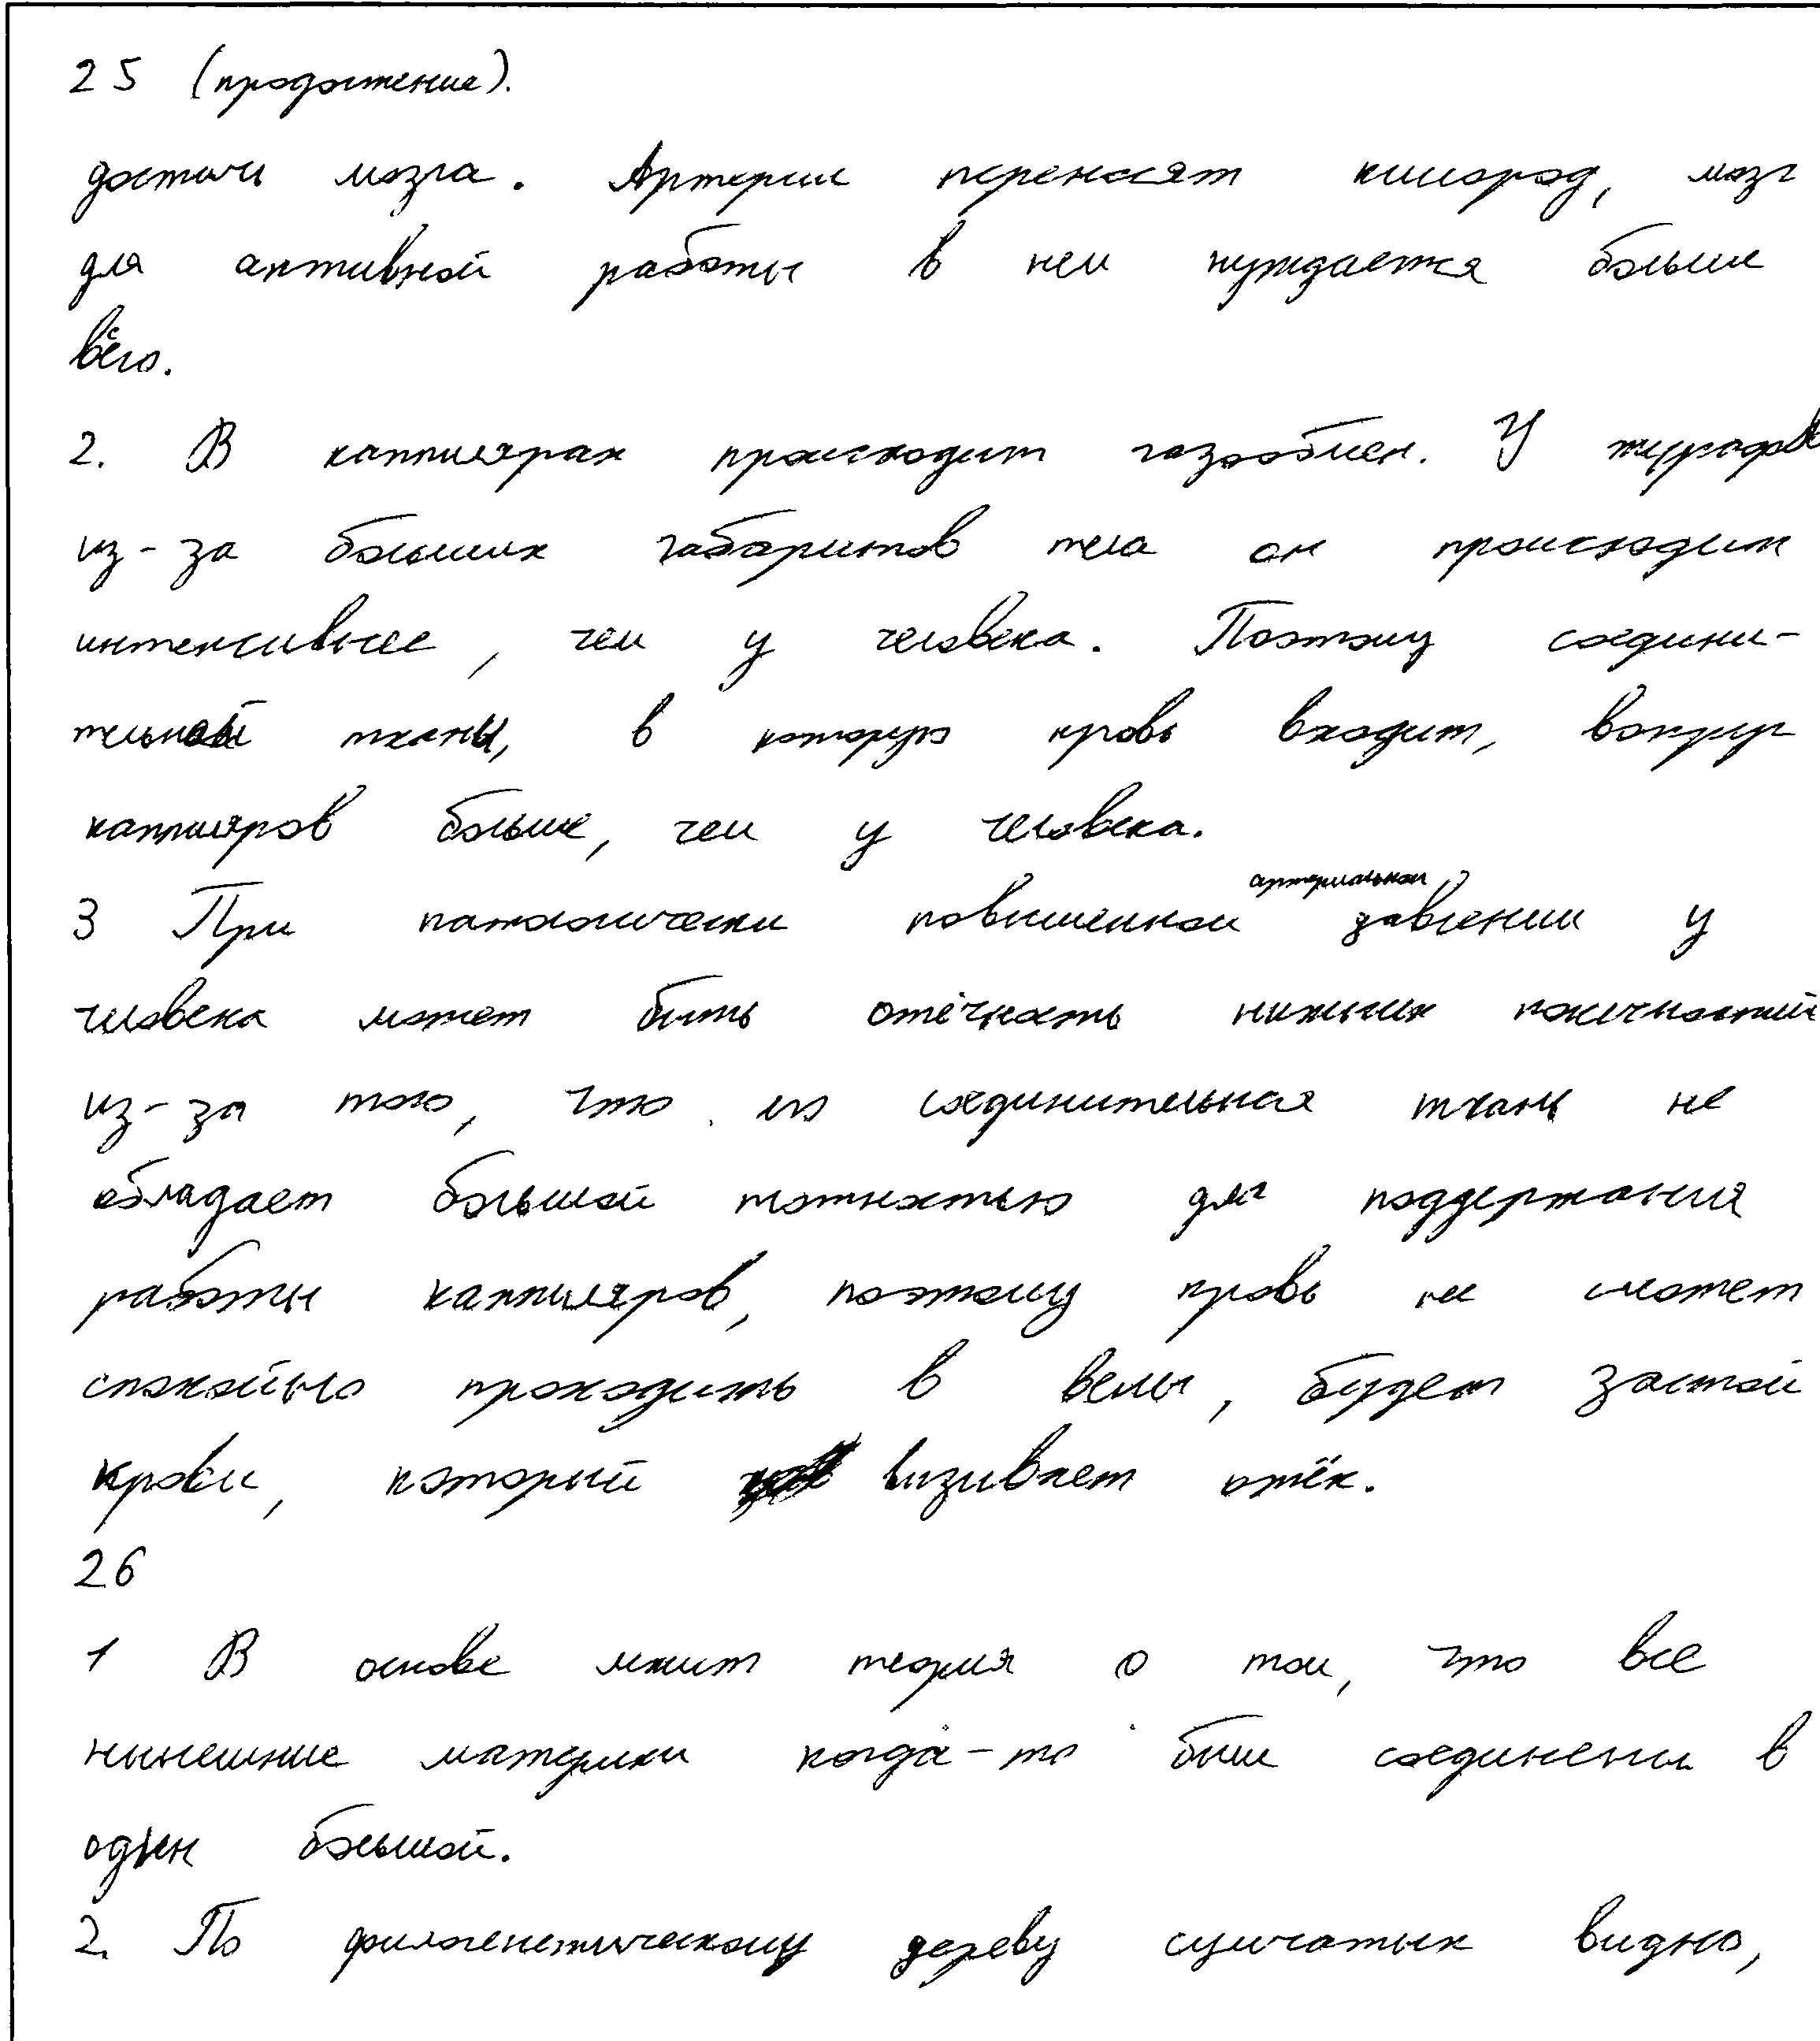 25 (продолжение).
достичь мозга. Артерии переносят кислород, мозг
для активной работы в нем нуждается больше
всего.
2. В каппилярах происходит газообмен. У жирафов
из-за больших габаритов тела он происходит
интенсивнее, чем у человека. Поэтому соедини-
тельной ткани, в которую кровь входит, вокруг
каппиляров больше, чем у человека.
3 При патологически повышенном артериальном давлении у
человека может быть отёчность нижних конечностей
из-за того, что его соединительная ткань не
обладает большой плотностью для поддержания
работы каппиляров, поэтому кровь не может
спокойно проходить в вены, будет застой
крови, который вызывает отёк.
26
1 В основе лежит теория о том, что все
нынешние материки когда-то были соединены в
один большой.
2. По филогенетическому дереву сумчатых видно,